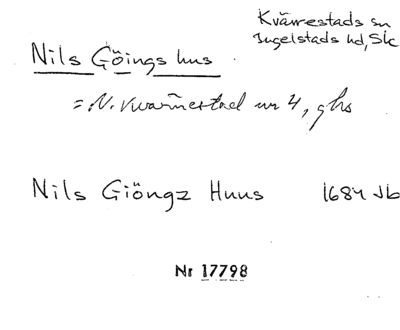 Kvärrestads sn
Ingelstads hd, Sk
Nils Göings hus
= N. Kvärrestad nr 4, ghs
Nils Giöngz Huus 1684 Jb
Nr 17798